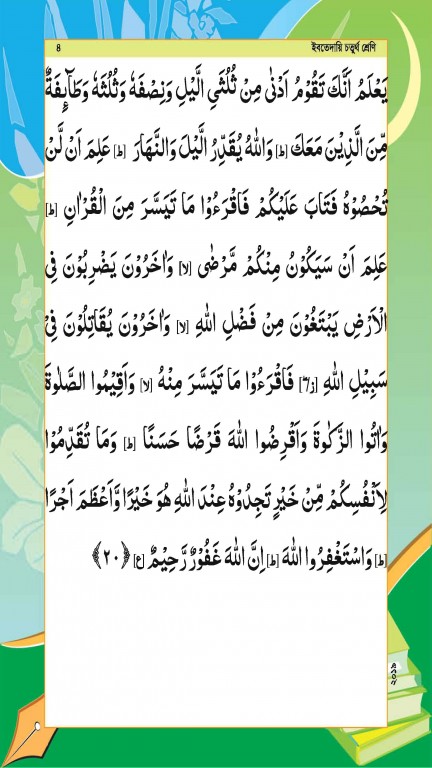 ৪ ইবতেদায়ি চতুর্থ শ্রেণি
يَعْلَمُ اَنَّكَ تَقُوْمُ اَدْنٰى مِنْ ثُلُثَيِ الَّيْلِ وَنِصْفَهٗ وَثُلُثَهٗ وَطَآىِٕفَةٌ
مِّنَ الَّذِيْنَ مَعَكَ [ط] وَاللهُ يُقَدِّرُ الَّيْلَ وَالنَّهَارَ [ط] عَلِمَ اَنْ لَّنْ
تُحْصُوْهُ فَتَابَ عَلَيْكُمْ فَاقْرَءُوْا مَا تَيَسَّرَ مِنَ الْقُرْاٰنِ [ط]
عَلِمَ اَنْ سَيَكُوْنُ مِنْكُمْ مَّرْضٰى [لا] وَاٰخَرُوْنَ يَضْرِبُوْنَ فِى
الْاَرْضِ يَبْتَغُوْنَ مِنْ فَضْلِ اللهِ [لا] وَاٰخَرُوْنَ يُقَاتِلُوْنَ فِى
سَبِيْلِ اللهِ فَاقْرَءُوْا مَا تَيَسَّرَ مِنْهُ [لا] وَاَقِيْمُوا الصَّلٰوةَ
وَاٰتُوا الزَّكٰوةَ وَاَقْرِضُوا اللهَ قَرْضًا حَسَنًا [ط] وَمَا تُقَدِّمُوْا
لِاَنْفُسِكُمْ مِّنْ خَيْرٍ تَجِدُوْهُ عِنْدَ اللهِ هُوَ خَيْرًا وَّاَعْظَمَ اَجْرًا
[ط] وَاسْتَغْفِرُوا اللهَ [ط] اِنَّ اللهَ غَفُوْرٌ رَّحِيْمٌ [ع] ﴿٢٠﴾
২০১৯